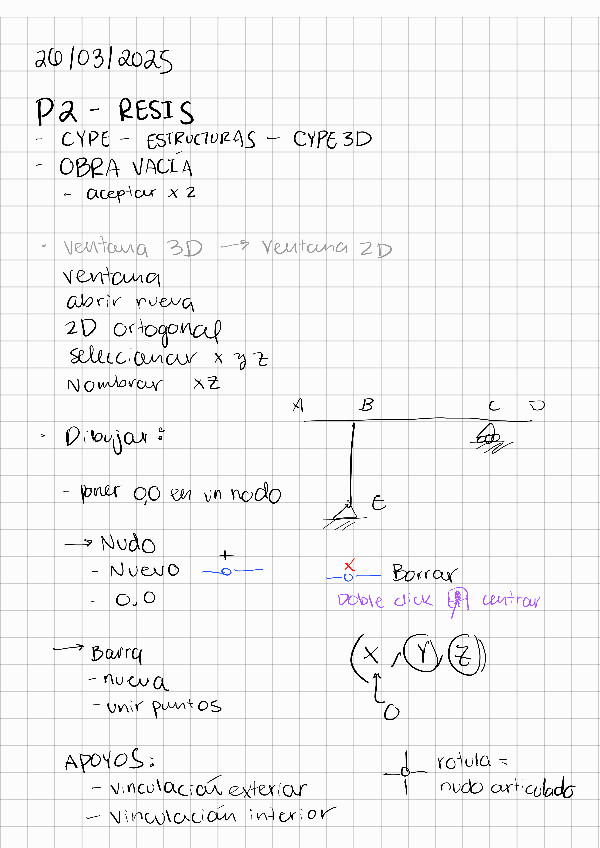 26/03/2025
P2 - RESIS
- CYPE - ESTRUCTURAS - CYPE 3D
- OBRA VACÍA
- aceptar x 2
· Ventana 3D → Ventana 2D
ventana
abrir nueva
2D ortogonal
seleccionar x y z
Nombrar xz
A B C D
· Dibujar:
E
- poner 0,0 en un nodo
→ Nudo
- Nuevo
+
- 0,0
x
Borrar
Doble click centrar
→ Barra
- nueva
- unir puntos
(X, Y, Z)
0
APOYOS:
- vinculación exterior
- vinculación interior
rotula =
nudo articulado